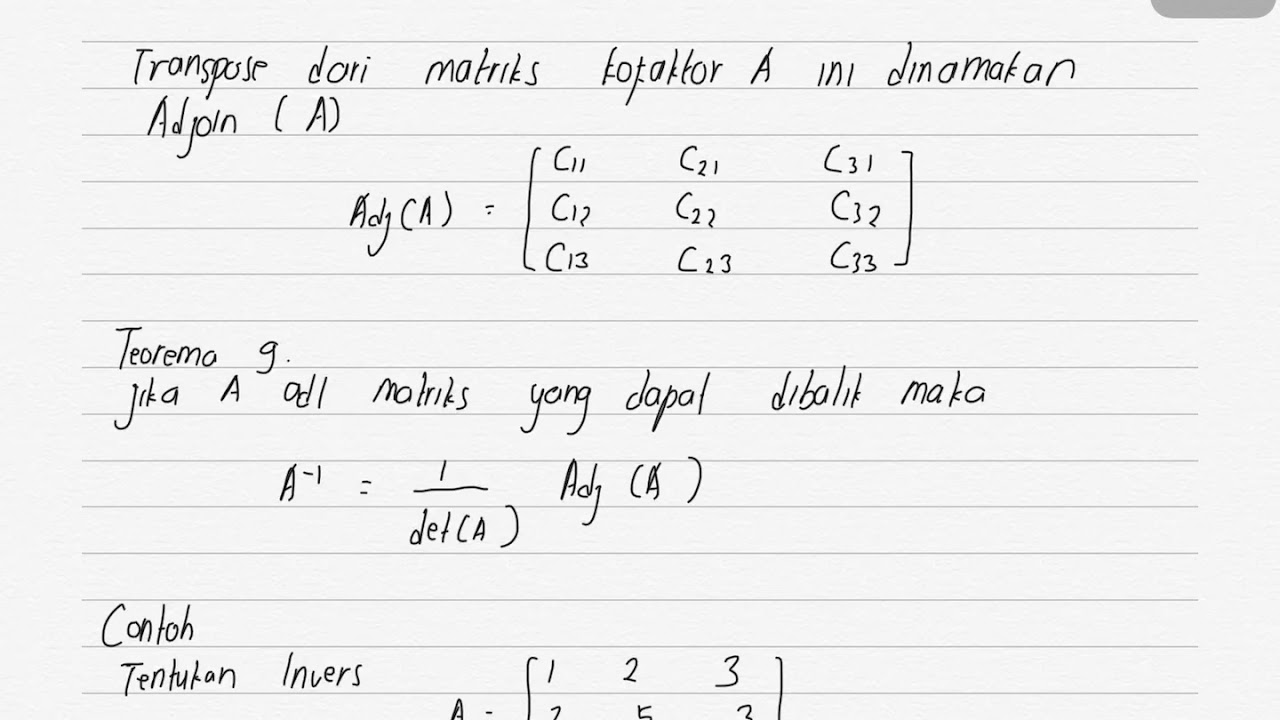 Transpose dari matriks kofaktor A ini dinamakan
Adjoin (A)
Adj(A) = [C11 C21 C31
C12 C22 C32
C13 C23 C33]
Teorema 9.
jika A adl matriks yang dapat dibalik maka
A⁻¹ = 1/det(A) Adj (A)
Contoh
Tentukan Invers
A = [1 2 3
2 5 3